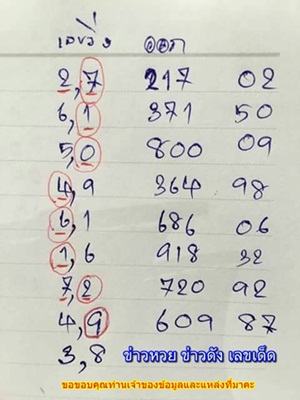 เลขวิ่ง ออก
2,7 217 02
6,1 371 50
5,0 800 09
4,9 364 98
6,1 686 06
1,6 918 32
7,2 720 92
4,9 609 87
3,8 ข่าวหวย ข่าวดัง เลขเด็ด
ขอขอบคุณท่านเจ้าของข้อมูลและแหล่งที่มาคะ